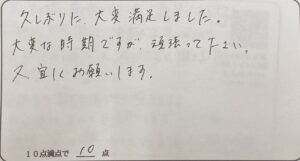 久しぶりに、大変満足しました。
大変な時期ですが、頑張って下さい。
又、宜しくお願いします。
10点満点で 10 点